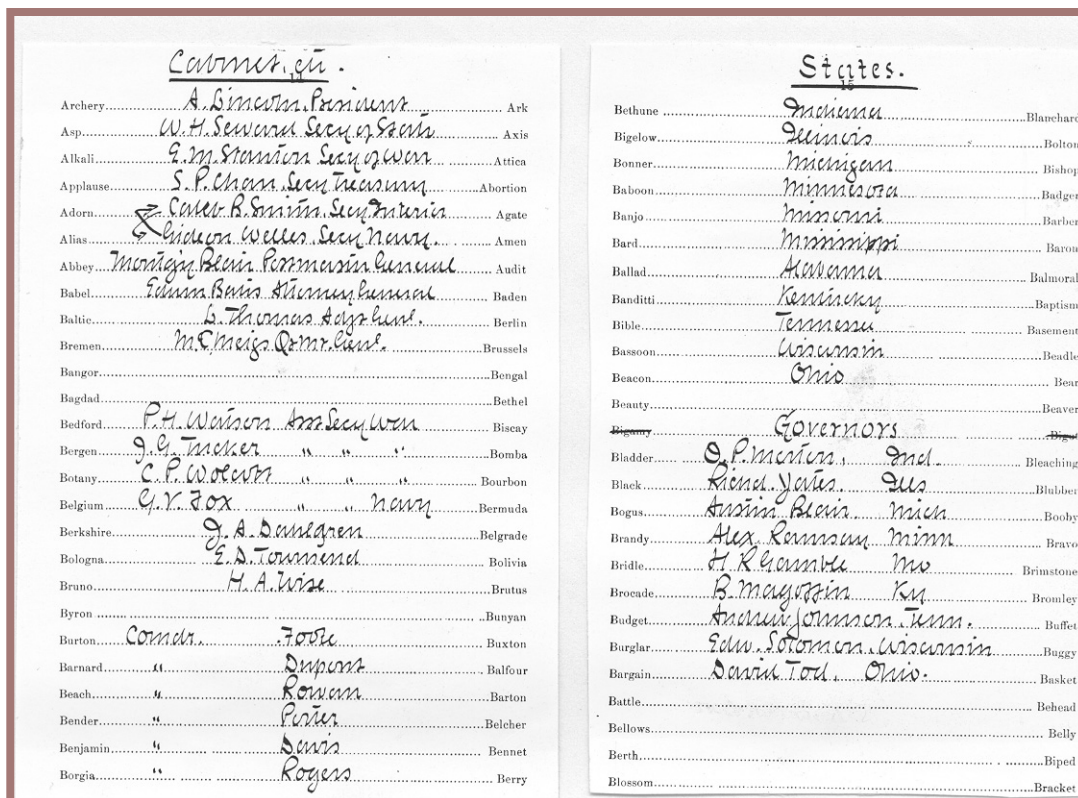 Cabinet, etc.
14
Archery A. Lincoln, President Ark
Asp W. H. Seward Secy of State Axis
Alkali E. M. Stanton Secy of War Attica
Applause S. P. Chase, Secy Treasury Abortion
Adorn Caleb B. Smith, Secy Interior Agate
Alias Gideon Welles, Secy Navy. Amen
Abbey Montgy Blair Postmaster General Audit
Babel Edwin Bates Attorney General Baden
Baltic L. Thomas Adjt Genl. Berlin
Bremen M. C. Meigs Qr Mr. Genl. Brussels
Bangor Bengal
Bagdad Bethel
Bedford P. H. Watson Asst Secy War Biscay
Bergen J. G. Tucker " " " Bomba
Botany C. P. Wolcott " " " Bourbon
Belgium G. V. Fox " " Navy Bermuda
Berkshire J. A. Dahlgren Belgrade
Bologna E. D. Townsend Bolivia
Bruno H. A. Wise Brutus
Byron Bunyan
Burton Comdr. Foote Buxton
Barnard " Dupont Balfour
Beach " Rowan Barton
Bender " Porter Belcher
Benjamin " Davis Bennet
Borgia " Rogers Berry
States.
15
Bethune Indiana Blanchard
Bigelow Illinois Bolton
Bonner Michigan Bishop
Baboon Minnesota Badger
Banjo Missouri Barber
Bard Mississippi Baron
Ballad Alabama Balmoral
Banditti Kentucky Baptism
Bible Tennessee Basement
Bassoon Wisconsin Beadle
Beacon Ohio Bear
Beauty Beaver
Bigamy Governors
Bladder O. P. Morton, Ind. Bleaching
Black Richd. Yates, Ills Blubber
Bogus Austin Blair, Mich Booby
Brandy Alex. Ramsay Minn Bravo
Bridle H R Gamble Mo Brimstone
Brocade B. Magoffin Ky Bromley
Budget Andrew Johnson. Tenn. Buffet
Burglar Edw. Solomon, Wisconsin Buggy
Bargain David Tod, Ohio. Basket
Battle Behead
Bellows Belly
Berth Biped
Blossom Bracket